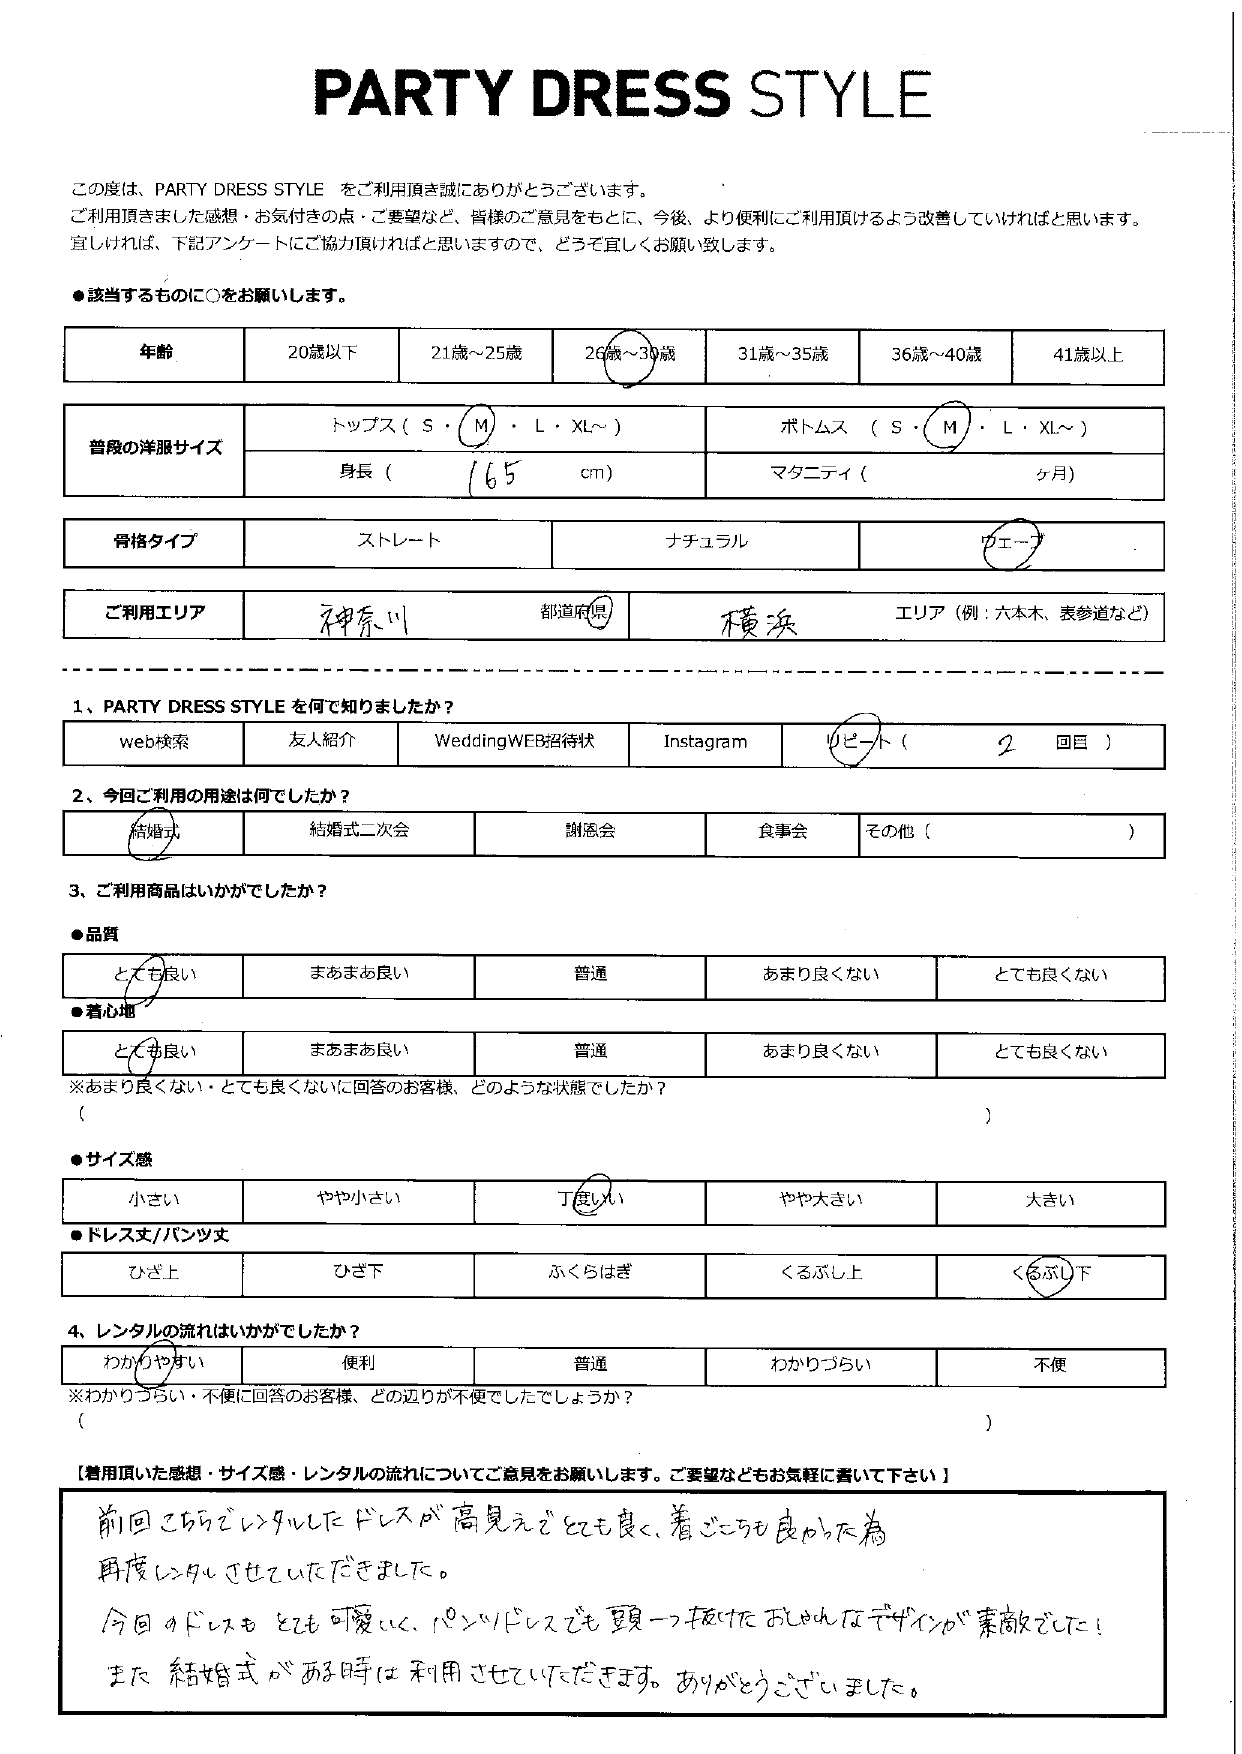 PARTY DRESS STYLE
この度は、PARTY DRESS STYLE をご利用頂き誠にありがとうございます。
ご利用頂きました感想・お気付きの点・ご要望など、皆様のご意見をもとに、今後、より便利にご利用頂けるよう改善していければと思います。
宜しければ、下記アンケートにご協力頂ければと思いますので、どうぞ宜しくお願い致します。
●該当するものに○をお願いします。
年齢 20歳以下 21歳～25歳 26歳～30歳 31歳～35歳 36歳～40歳 41歳以上
普段の洋服サイズ トップス ( S ・ M ・ L ・ XL～ ) ボトムス ( S ・ M ・ L ・ XL～ )
身長 ( 165 cm) マタニティ ( ヶ月)
骨格タイプ ストレート ナチュラル ウェーブ
ご利用エリア 神奈川 都道府県 横浜 エリア（例：六本木、表参道など）
1、PARTY DRESS STYLE を何で知りましたか？
web検索 友人紹介 WeddingWEB招待状 Instagram リピート ( 2 回目 )
2、今回ご利用の用途は何でしたか？
結婚式 結婚式二次会 謝恩会 食事会 その他 ( )
3、ご利用商品はいかがでしたか？
●品質
とても良い まあまあ良い 普通 あまり良くない とても良くない
●着心地
とても良い まあまあ良い 普通 あまり良くない とても良くない
※あまり良くない・とても良くないに回答のお客様、どのような状態でしたか？
( )
●サイズ感
小さい やや小さい 丁度いい やや大きい 大きい
●ドレス丈/パンツ丈
ひざ上 ひざ下 ふくらはぎ くるぶし上 くるぶし下
4、レンタルの流れはいかがでしたか？
わかりやすい 便利 普通 わかりづらい 不便
※わかりづらい・不便に回答のお客様、どの辺りが不便でしたでしょうか？
( )
【着用頂いた感想・サイズ感・レンタルの流れについてご意見をお願いします。ご要望などもお気軽に書いて下さい 】
前回こちらでレンタルしたドレスが高見えでとても良く、着ごこちも良かった為
再度レンタルさせていただきました。
今回のドレスもとても可愛いく、パンツドレスでも頭一つ抜けたおしゃれなデザインが素敵でした！
また結婚式がある時は利用させていただきます。ありがとうございました。